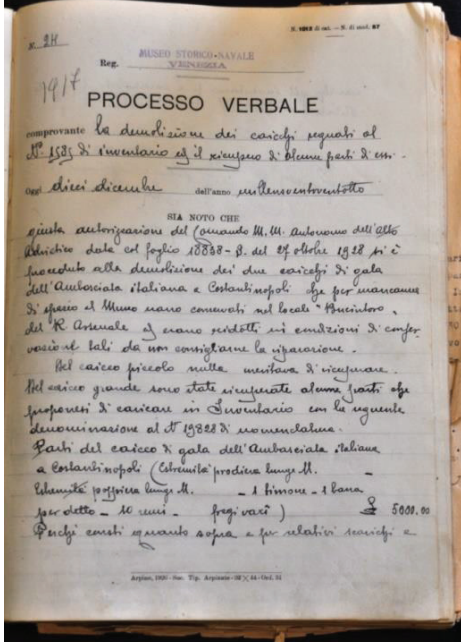 N. 1012 di cat. - N. di mod. 67
N. 24
Reg.
MUSEO STORICO-NAVALE
VENEZIA
1917
PROCESSO VERBALE
comprovante la demolizione dei caicchi segnati al
N° 1585 di inventario ed il ricupero di alcune parti di essi.
Oggi dieci dicembre dell'anno millenovecentoventotto
SIA NOTO CHE
giusta autorizzazione del Comando M.M. autonomo dell'alto
Adriatico data col foglio 18838-B. del 27 ottobre 1928 si è
proceduto alla demolizione dei due caicchi di gala
dell'Ambasciata italiana a Costantinopoli che per mancanza
di spazio al Museo erano conservati nel locale "Bucintoro"
del R. Arsenale ed erano ridotti in condizioni di conser
vazione tali da non consigliarne la riparazione.
Del caicco piccolo nulla meritava di ricuperare.
Del caicco grande sono state ricuperate alcune parti che
proponesi di caricare in Inventario con la seguente
denominazione al N° 19828 di nomenclatura.
Parti del caicco di gala dell'Ambasciata italiana
a Costantinopoli (Estremità prodiera lunga M. -
Estremità poppiera lunga M. - 1 timone - 1 barra
per detto - 10 remi - fregi vari) £ 5000.00
Perchè consti quanto sopra e per relativi scarichi e